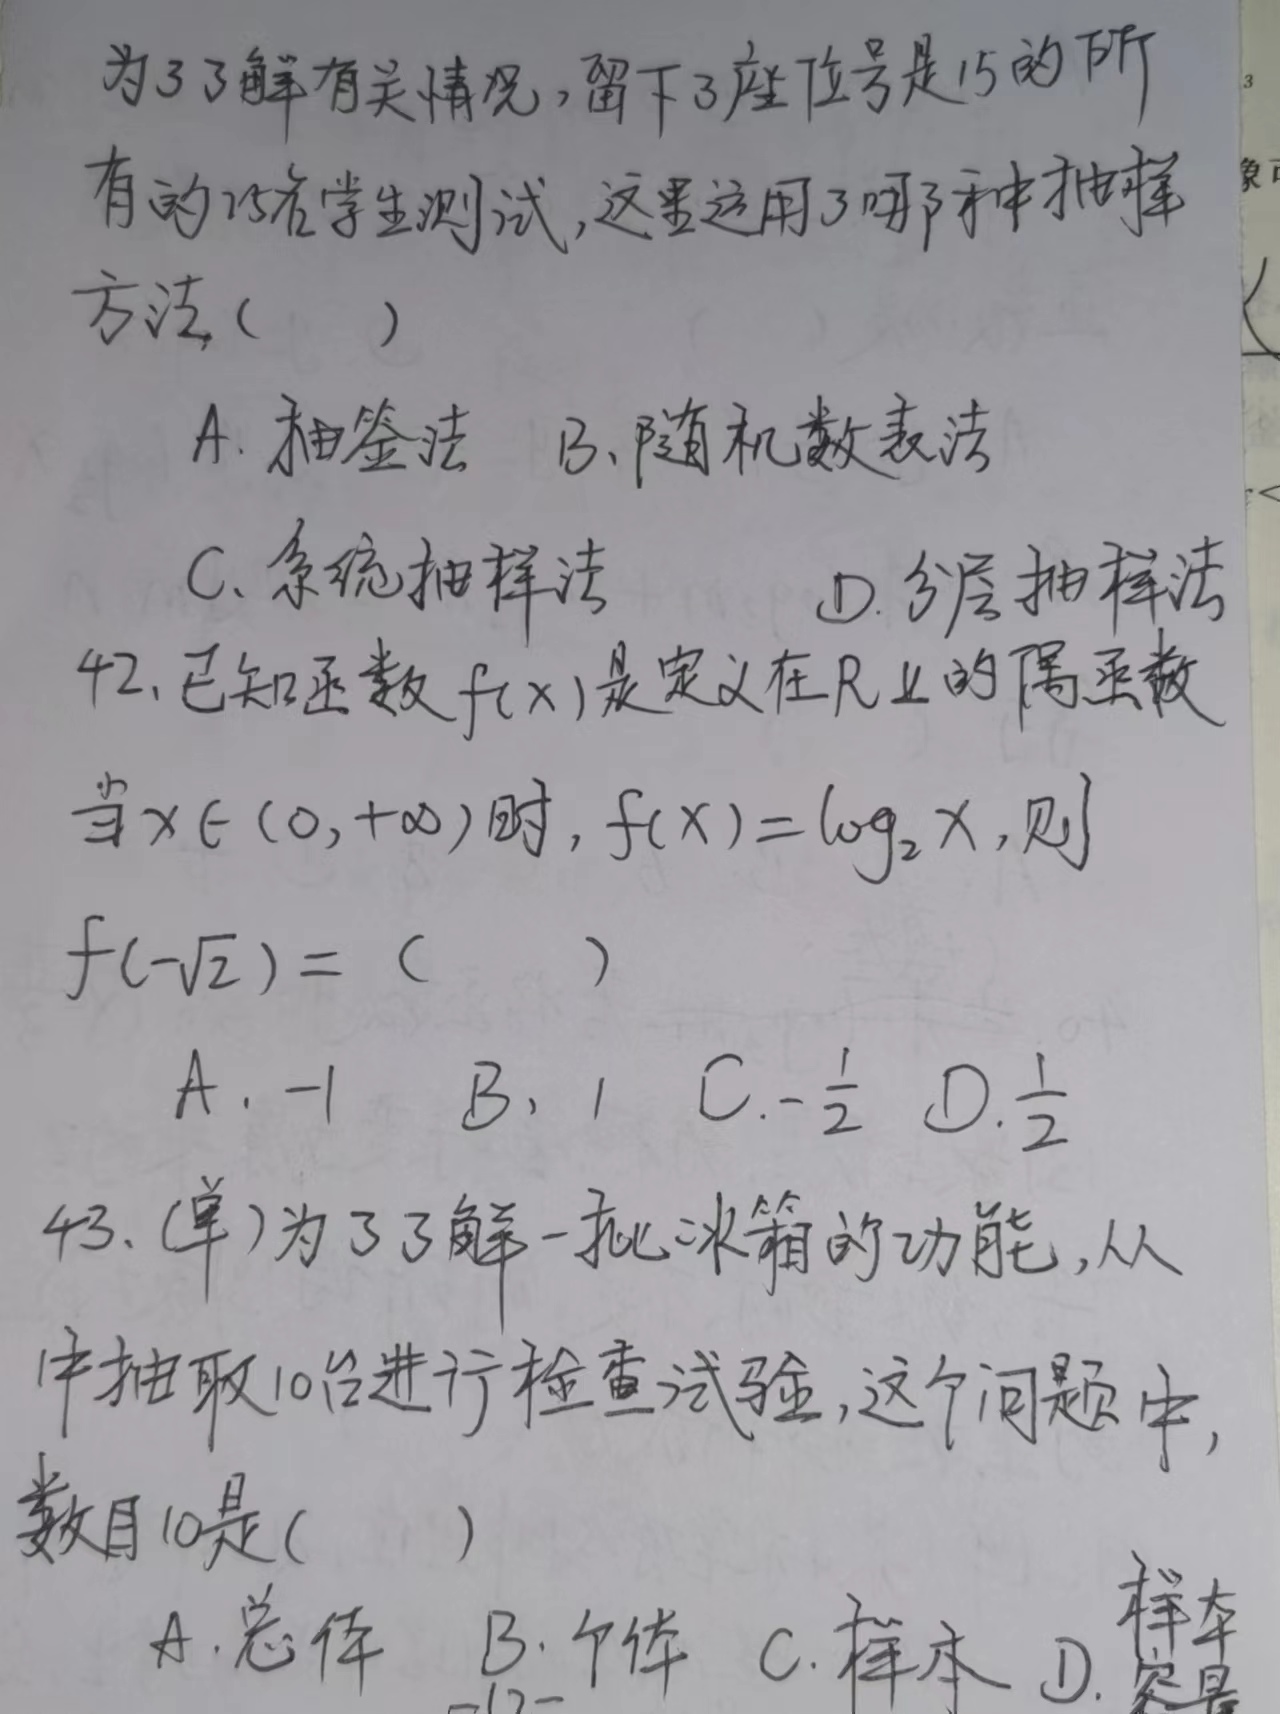 为了了解有关情况，留下了座位号是15的所
有的25名学生测试，这里运用了哪种抽样
方法（ ）
A. 抽签法 B、随机数表法
C、系统抽样法 D. 分层抽样法
42、已知函数f(x)是定义在R上的偶函数
当x∈(0,+∞)时，f(x)=log₂x，则
f(-√2)=（ ）
A. -1 B、1 C. -1/2 D. 1/2
43、(单)为了了解一批冰箱的功能，从
中抽取10台进行检查试验，这个问题中，
数目10是（ ）
A. 总体 B. 个体 C. 样本 D. 样本容量
3